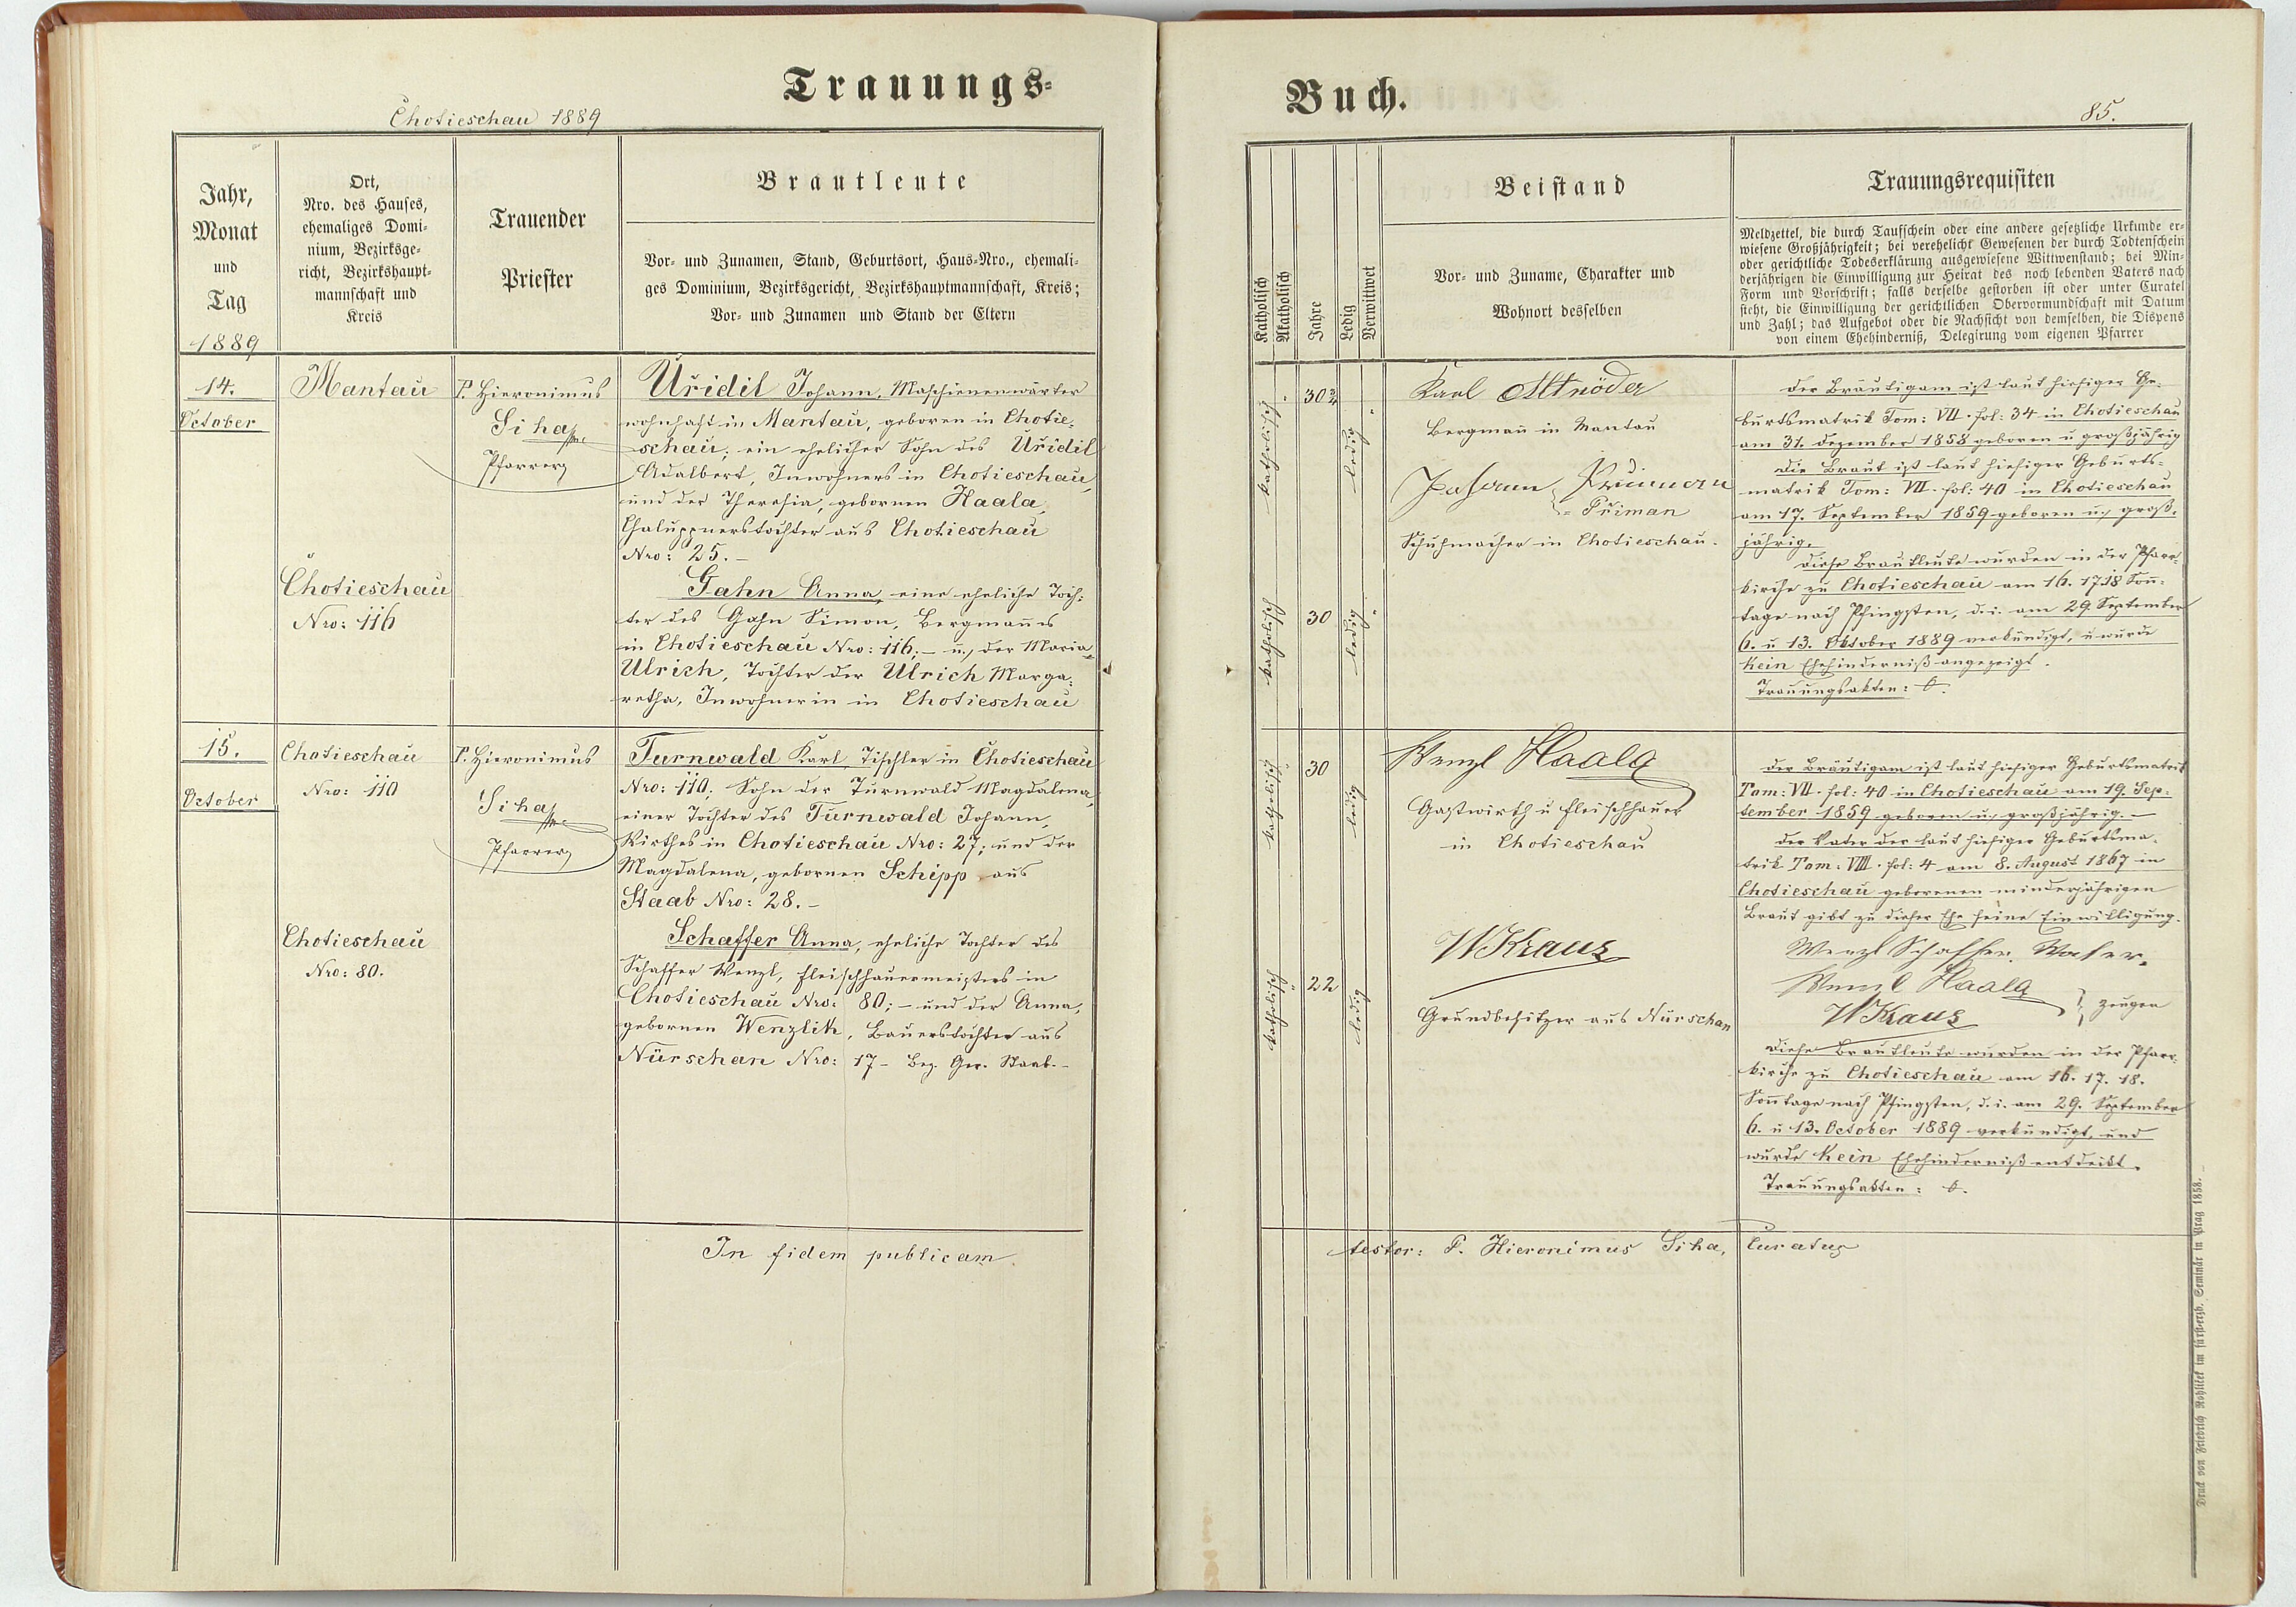 Trauungs-
Chotieschau 1889
Jahr,
Monat
und
Tag
1889
Ort,
Nro. des Hauses,
ehemaliges Domi-
nium, Bezirksge-
richt, Bezirkshaupt-
mannschaft und
Kreis
Trauender
Priester
Brautleute
Vor- und Zunamen, Stand, Geburtsort, Haus-Nro., ehemali-
ges Dominium, Bezirksgericht, Bezirkshauptmannschaft, Kreis;
Vor- und Zunamen und Stand der Eltern
14.
October
Mantau
Chotieschau
Nro: 116
P. Hieronimus
Siha
Pfarrer
Uřidil Johann, Maschienenwärter
wohnhaft in Mantau, geboren in Chotie-
schau; ein ehelicher Sohn des Uřidil
Adalbert, Inwohners in Chotieschau,
und der Theresia, gebornen Haala,
Chaluppnerstochter aus Chotieschau
Nro: 25.-
Gahn Anna, eine eheliche Toch-
ter des Gahn Simon, Bergmannes
in Chotieschau Nro: 116;- u. der Maria
Ulrich, Tochter der Ulrich Marga-
retha, Inwohnerin in Chotieschau
15.
October
Chotieschau
Nro: 110
Chotieschau
Nro: 80.
P. Hieronimus
Siha
Pfarrer
Turnwald Karl, Tischler in Chotieschau
Nro: 110; Sohn der Turnwald Magdalena,
einer Tochter des Turnwald Johann,
Wirthes in Chotieschau Nro: 27; und der
Magdalena, gebornen Schipp aus
Staab Nro: 28.-
Schaffer Anna, eheliche Tochter des
Schaffer Wenzl, Fleischhauermeisters in
Chotieschau Nro: 80;- und der Anna,
gebornen Wenzlik, Bauerstochter aus
Nürschan Nro: 17- Bez. Ger. Staab.-
In fidem publicam
Buch.
85.
Katholisch
Akatholisch
Jahre
Ledig
Verwittwet
Beistand
Vor- und Zuname, Charakter und
Wohnort desselben
Trauungsrequisiten
Meldzettel, die durch Taufschein oder eine andere gesetzliche Urkunde er-
wiesene Großjährigkeit; bei verehelicht Gewesenen der durch Todtenschein
oder gerichtliche Todeserklärung ausgewiesene Wittwenstand; bei Min-
derjährigen die Einwilligung zur Heirat des noch lebenden Vaters nach
Form und Vorschrift; falls derselbe gestorben ist oder unter Curatel
steht, die Einwilligung der gerichtlichen Obervormundschaft mit Datum
und Zahl; das Aufgebot oder die Nachsicht von demselben, die Dispens
von einem Ehehinderniß, Delegirung vom eigenen Pfarrer
katholisch
30 3/4
ledig
katholisch
30
ledig
Karl Altnöder
Bergmann in Mantau
Johann
= Přiman
Schuhmacher in Chotieschau.
Der Bräutigam ist laut hiesiger Ge-
burtsmatrik Tom: VII. fol: 34 in Chotieschau
am 31. Dezember 1858 geboren u großjährig
Die Braut ist laut hiesiger Geburts-
matrik Tom: VII. fol: 40 in Chotieschau
am 17. September 1859 geboren u. groß-
jährig.
Diese Brautleute wurden in der Pfarr-
kirche zu Chotieschau am 16. 17. 18 Sonn-
tage nach Pfingsten, d. i. am 29. September
6. u 13. Oktober 1889 verkündigt, u wurde
kein Ehehinderniß angezeigt.
Trauungsakten:
katholisch
30
ledig
katholisch
22
ledig
Wenzl Haala
Gastwirth u Fleischhauer
in Chotieschau
W Kraus
Grundbesitzer aus Nürschan
Der Bräutigam ist laut hiesiger Geburtsmatrik
Tom: VII. fol: 40 in Chotieschau am 19. Sep-
tember 1859 geboren u. großjährig.-
Der Vater der laut hiesiger Geburtsma-
trik Tom: VIII. fol: 4 am 8. August 1867 in
Chotieschau geborenen minderjährigen
Braut gibt zu dieser Ehe seine Einwilligung.
Wenzl Schaffer. Vater.
Wenzl Haala
W Kraus
} Zeugen
Diese Brautleute wurden in der Pfarr-
kirche zu Chotieschau am 16. 17. 18.
Sonntage nach Pfingsten, d. i. am 29. September
6. u 13. October 1889 verkündigt, und
wurde kein Ehehinderniß entdeckt.
Trauungsakten:
testor: P. Hieronimus Siha, Curatus
Druck von Friedrich Rohliček im fürsterzb. Seminär in Prag 1858.